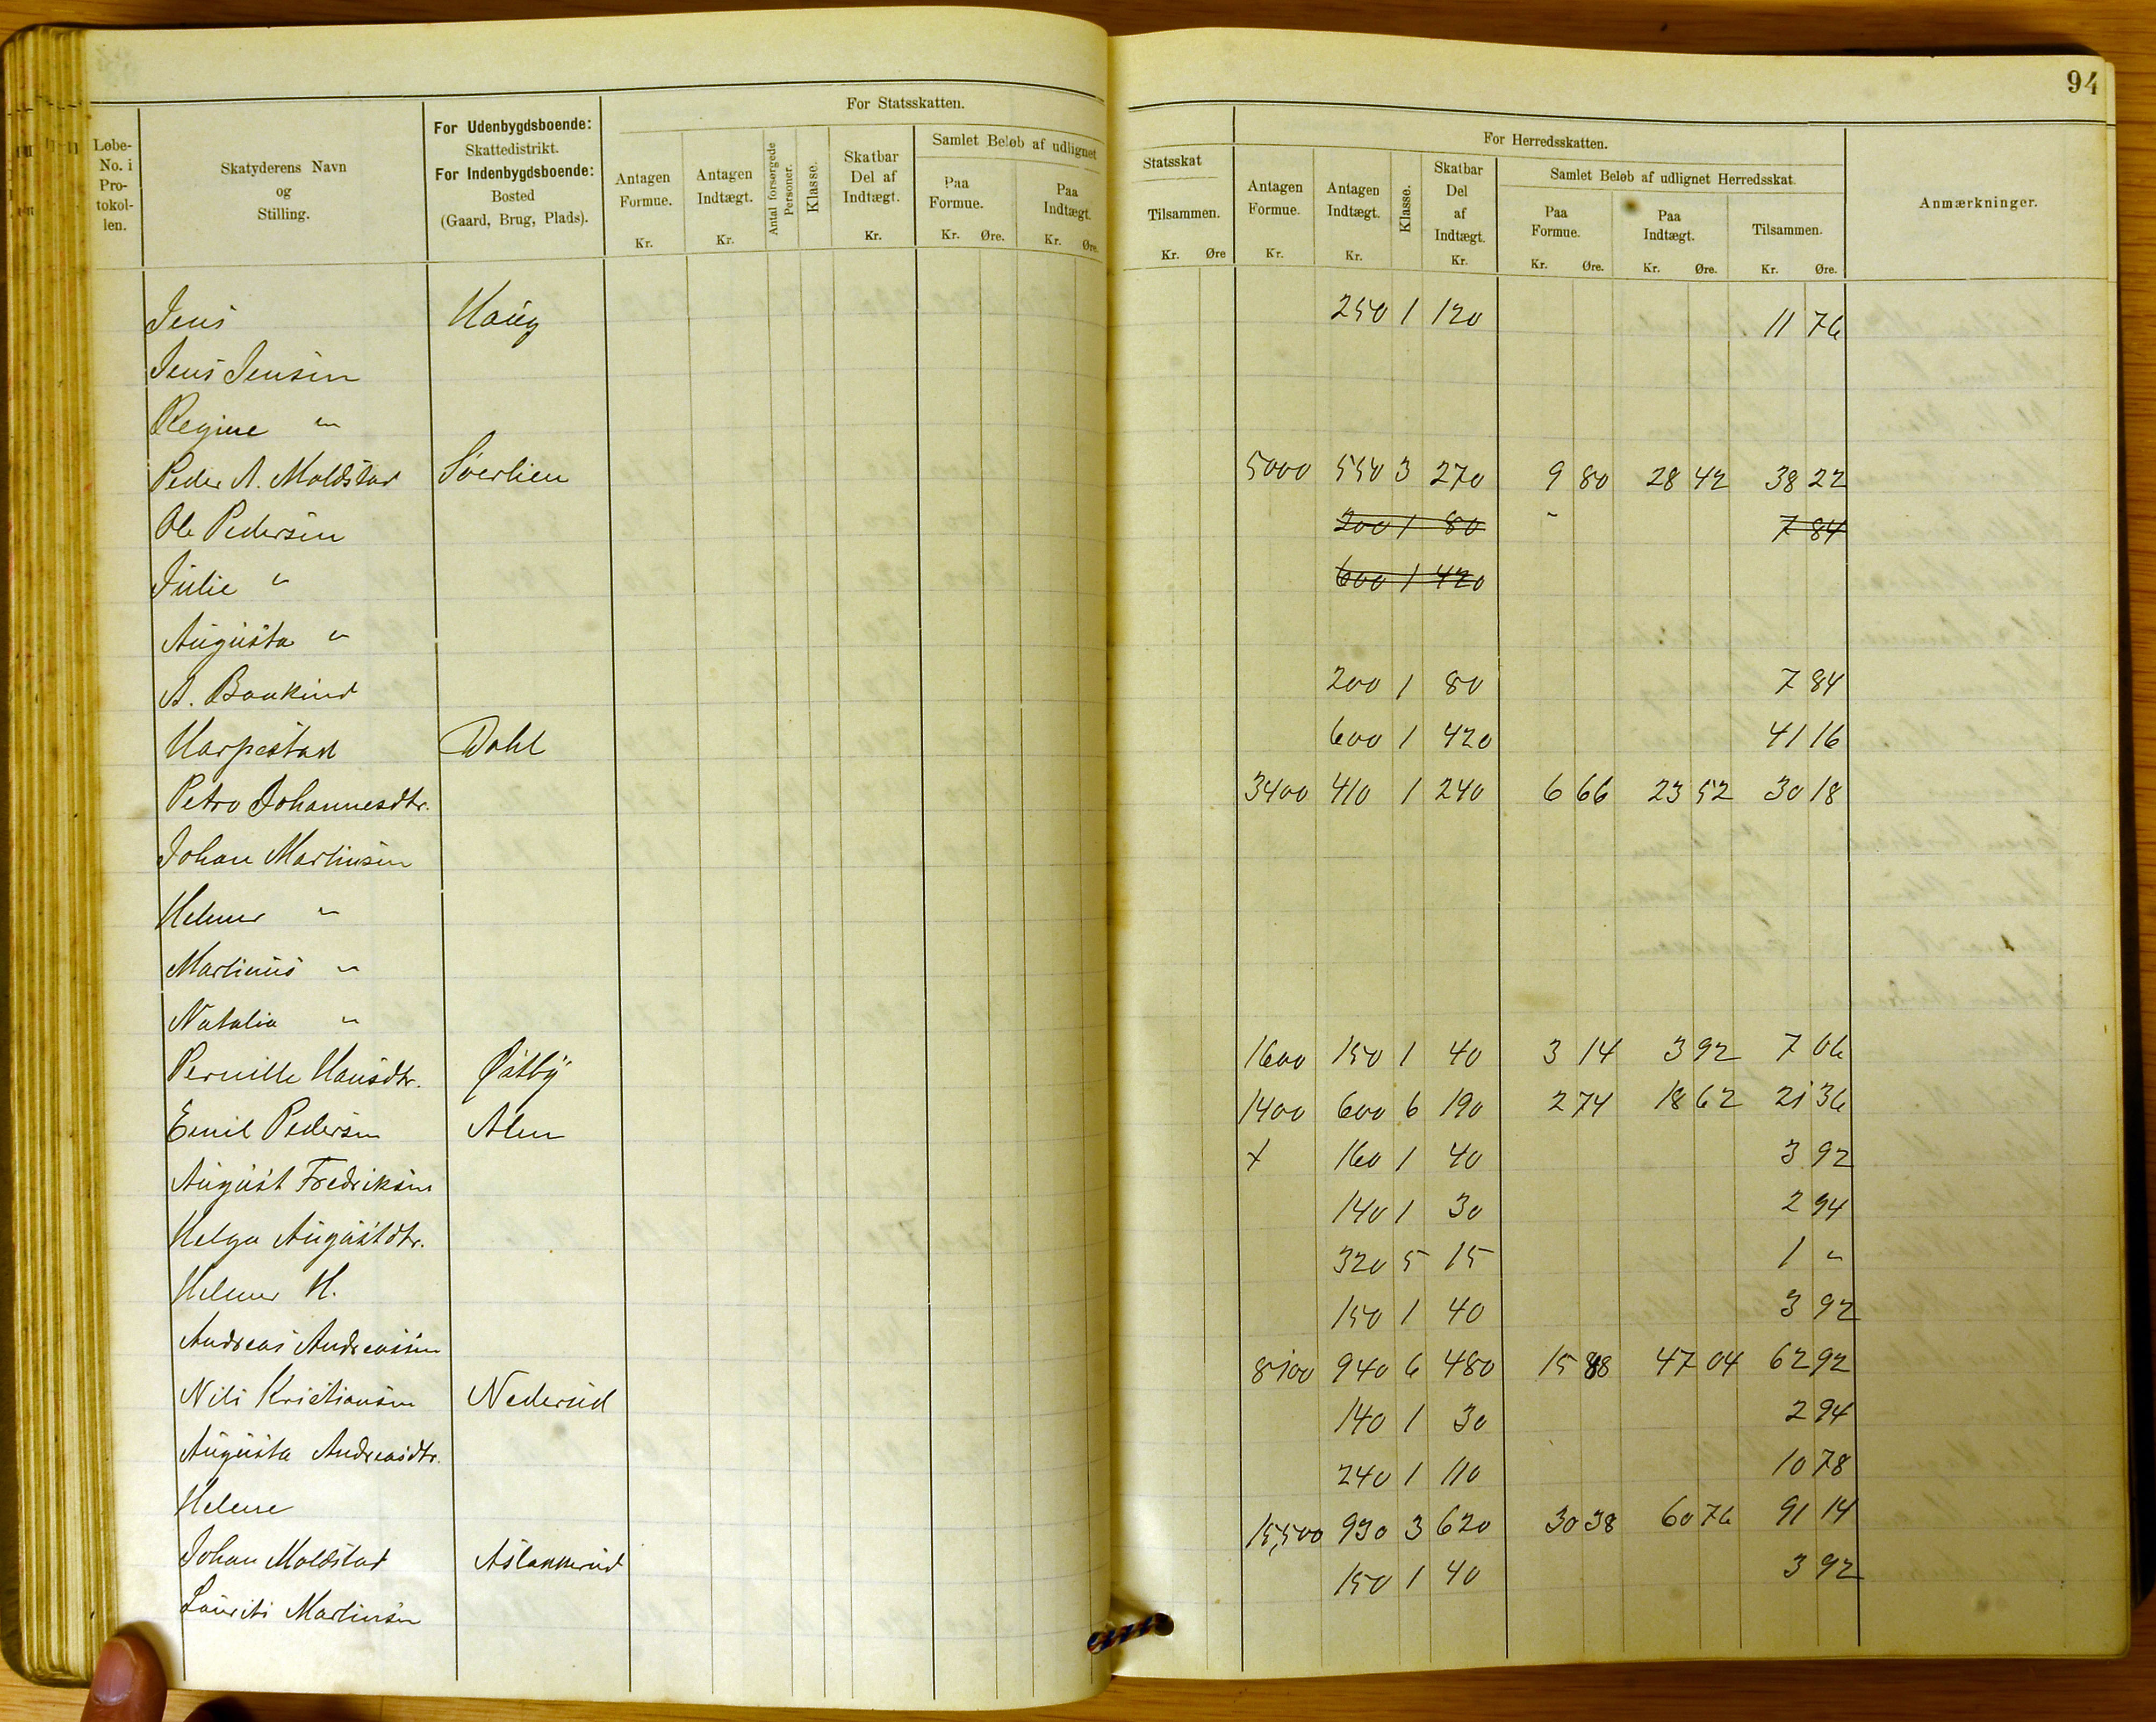 94
Løbe-No. i Protokollen.
Skatyderens Navn og Stilling.
For Udenbygdsboende: Skattedistrikt. For Indenbygdsboende: Bosted (Gaard, Brug, Plads).
For Statsskatten.
Antagen Formue. Kr.
Antagen Indtægt. Kr.
Antal forsørgede Personer.
Klasse.
Skatbar Del af Indtægt. Kr.
Samlet Beløb af udlignet
Paa Formue. Kr. Øre.
Paa Indtægt. Kr. Øre.
Statsskat
Tilsammen. Kr. Øre
For Herredsskatten.
Antagen Formue. Kr.
Antagen Indtægt. Kr.
Klasse.
Skatbar Del af Indtægt. Kr.
Samlet Beløb af udlignet Herredsskat.
Paa Formue. Kr. Øre.
Paa Indtægt. Kr. Øre.
Tilsammen. Kr. Øre.
Anmærkninger.
Jens Haug 250 1 120 11 76
Jens Jensen
Regine "
Peder A. Moldstad Søerlien 5000 550 3 270 9 80 28 42 38 22
Ole Pedersen 200 1 80 - 7 84
Julie " 600 1 420
Augusta "
A. Baukind 200 1 80 7 84
Harpestad Dahl 600 1 420 41 16
Petro Johannesdtr. 3400 410 1 240 6 66 23 52 30 18
Johan Martinsen
Helmer "
Martinus "
Natalia "
Pernille Hansdtr. Østby 1600 150 1 40 3 14 3 92 7 06
Emil Pedersen Alm 1400 600 6 190 2 74 18 62 21 36
August Fredriksen x 160 1 40 3 92
Helga Augustdtr. 140 1 30 2 94
Helmer H. 320 5 15 1 "
Andreas Andreassen 150 1 40 3 92
Nils Kristiansen Nederud 8100 940 6 480 15 88 47 04 62 92
Augusta Andreasdtr. 140 1 30 2 94
Helene 240 1 110 10 78
Johan Moldstad Aslakkerud 15,500 930 3 620 30 38 60 76 91 14
Laurits Martinsen 150 1 40 3 92